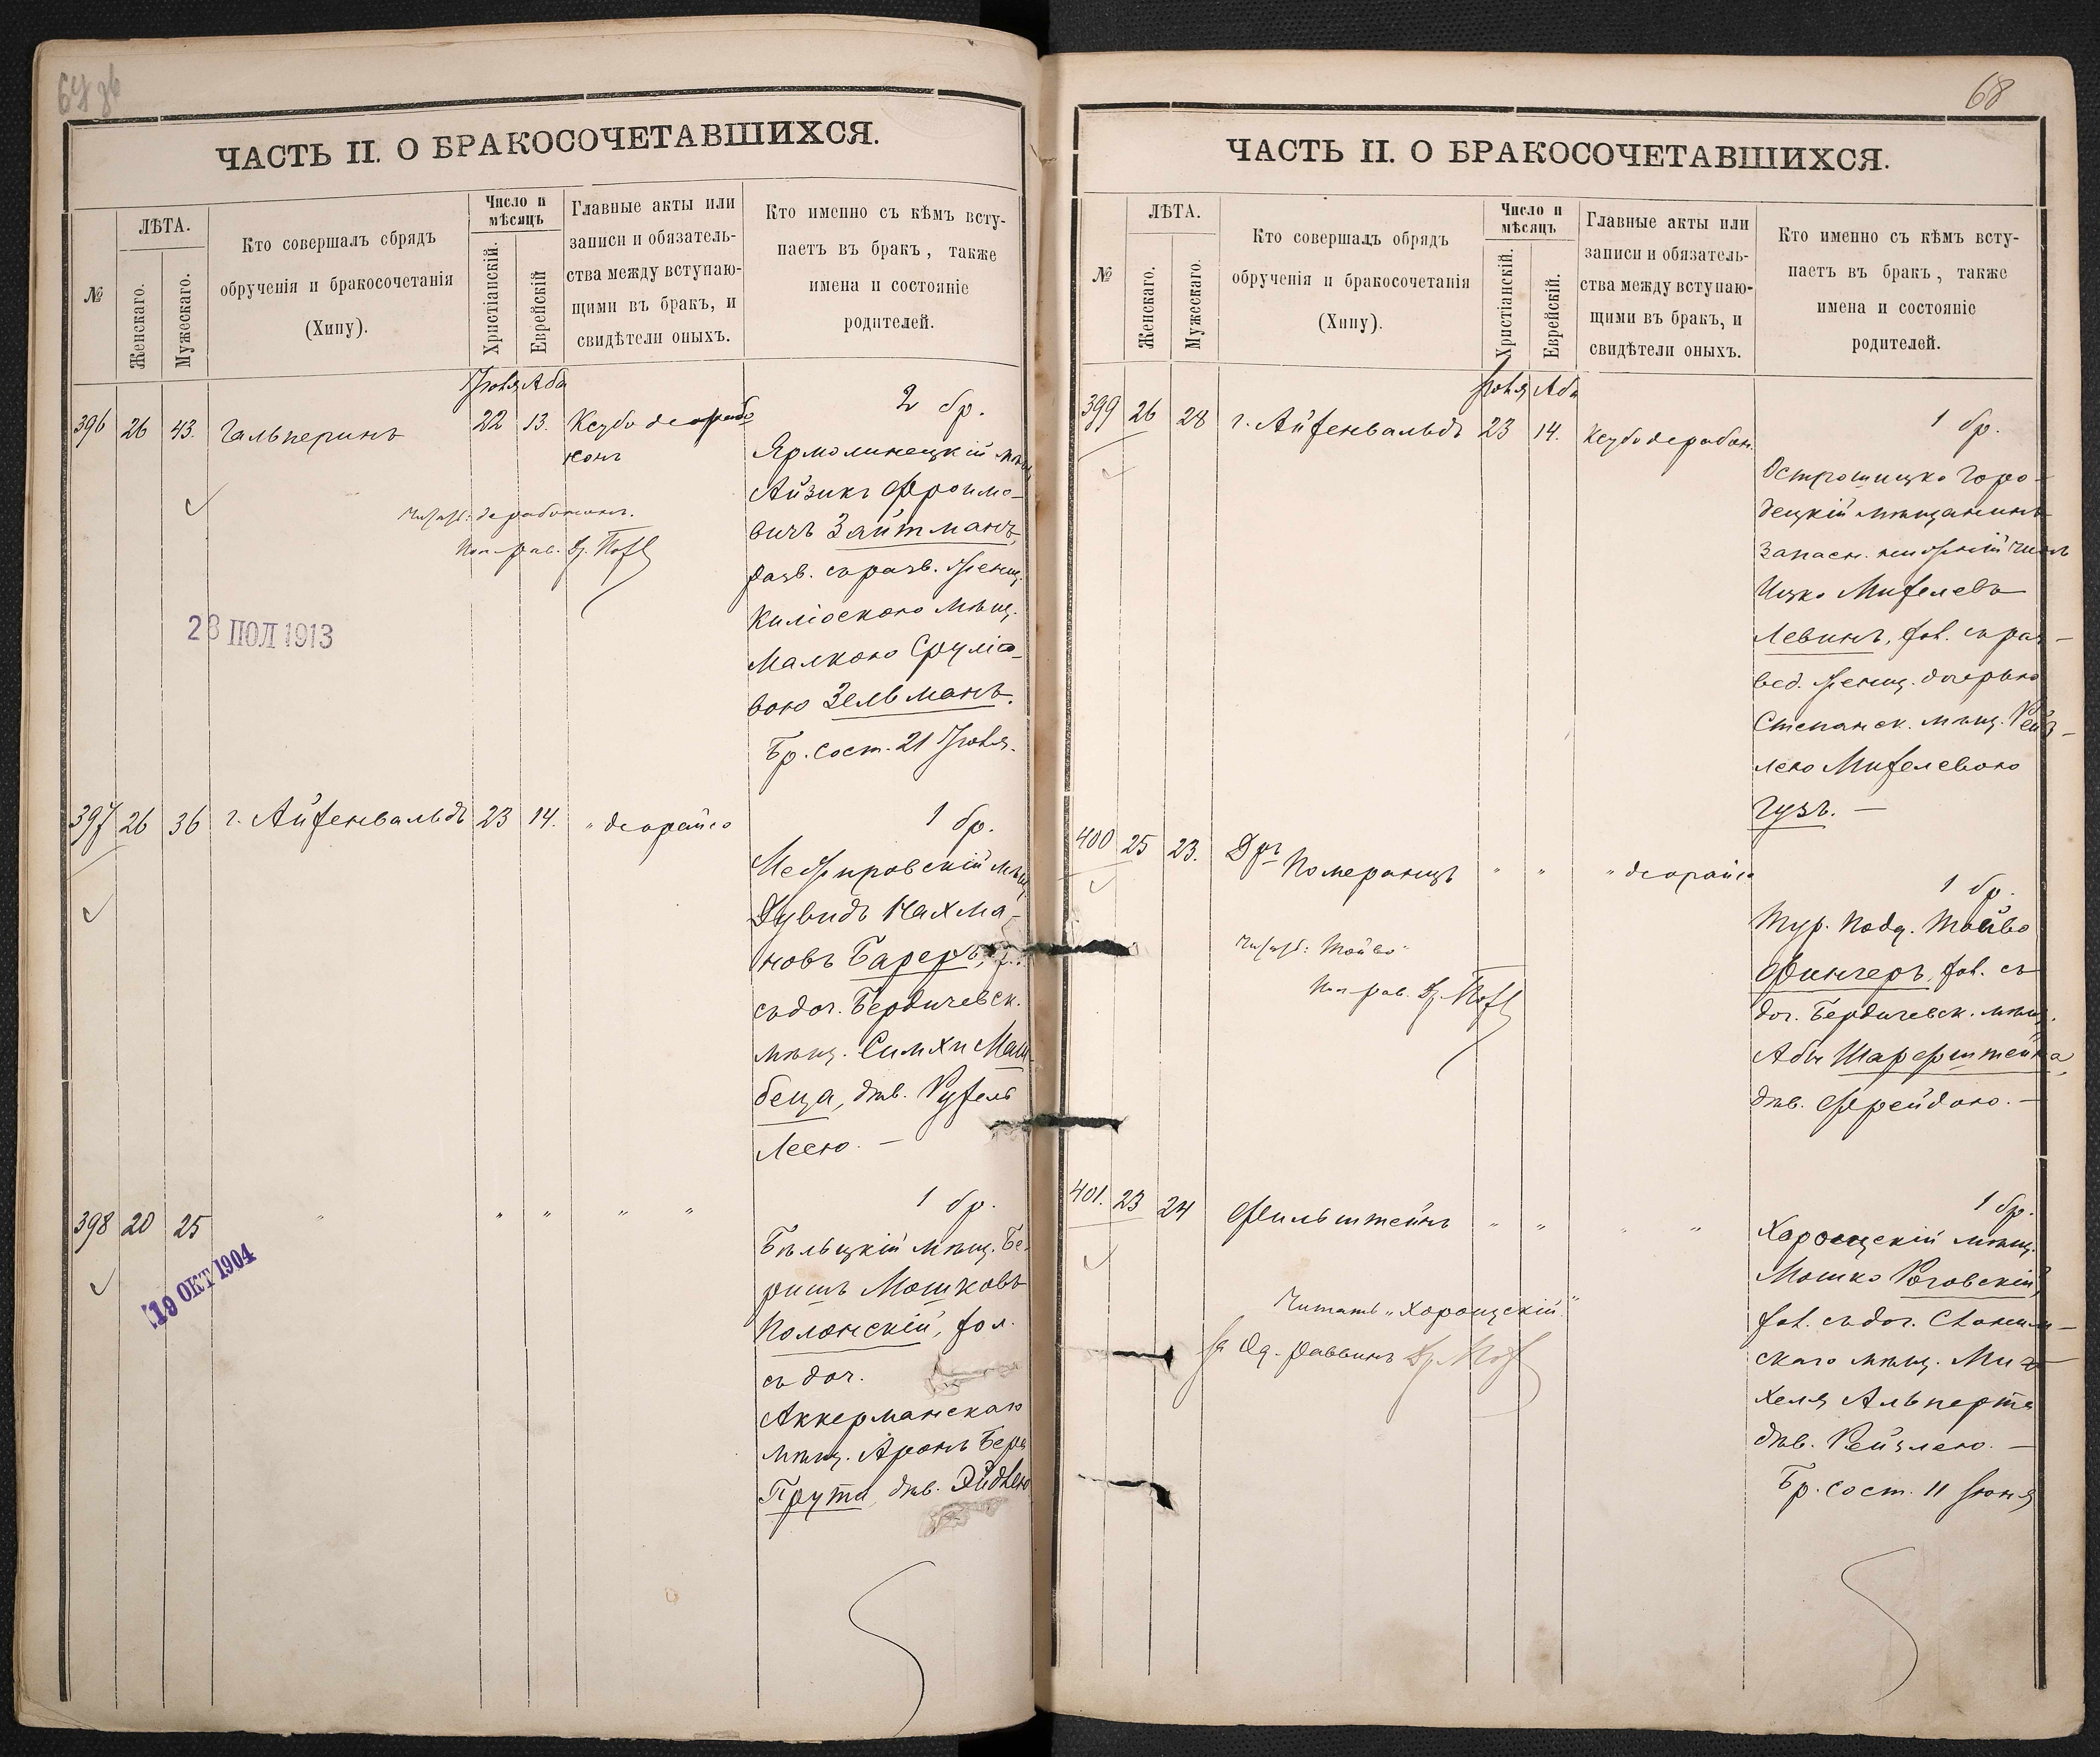 ЧАСТЬ II. О БРАКОСОЧЕТАВШИХСЯ.
№
ЛѢТА.
Женскаго.
Мужескаго.
Кто совершалъ обрядъ
обрученія и бракосочетанія
(Хипу).
Число и
мѣсяцъ
Христіанскій.
Еврейскій
Главные акты или
записи и обязатель-
ства между вступаю-
щими въ бракъ, и
свидѣтели оныхъ.
Кто именно съ кѣмъ всту-
паетъ въ бракъ, также
имена и состояніе
родителей.
Іюля Аба
396 26 43. Гальперинъ 22 13. Ксубо дерабо
нонъ
2 бр.
Ярмолинецкій мѣщ.
Айзикъ Фроимо-
вичъ Зайтманъ,
разв. съ разв. женщ.
Киліоскою мѣщ.
Малкою Срулiо-
вою Зельманъ.
Бр. сост. 21 Іюля.
дерабононъ.
28 ПОЛ 1913
397 26 36 г. Айзенвальдъ 23 14. " деорайсо
1 бр.
Межировскій мѣщ.
Дувидъ Нахма-
новъ Бареръ,
съ доч. Бердичевск.
мѣщ. Симхи Маш-
беца, дѣв. Рухель
Леею. —
398 20 25 " " " " "
19 ОКТ 1904
1 бр.
Бѣльцкій мѣщ. Бе-
ришъ Мошковъ
Полонскій, хол.
съ доч.
Аккерманскаго
мѣщ. Аронъ Бера
Прута, дѣв. Эйдлею
68
ЧАСТЬ II. О БРАКОСОЧЕТАВШИХСЯ.
№
ЛѢТА.
Женскаго.
Мужескаго.
Кто совершалъ обрядъ
обрученія и бракосочетанія
(Хипу).
Число и
мѣсяцъ
Христіанскій.
Еврейскій.
Главные акты или
записи и обязатель-
ства между вступаю-
щими въ бракъ, и
свидѣтели оныхъ.
Кто именно съ кѣмъ всту-
паетъ въ бракъ, также
имена и состояніе
родителей.
Іюля Аба
399 26 28 г. Айзенвальдъ 23 14. Ксубо дерабон.
1 бр.
Острошицко Горо-
децкій мѣщанинъ
Запасн. нижній чинъ
Ицко Михелевъ
Левинъ, хол. съ раз-
вед. женщ. дочерью
Степанск. мѣщ. Рейз-
лею Михелевою
Гузъ. —
400 25 23. Дръ Померанцъ " " " деорайсо
1 бр.
Тур. подд. Тойво
Фингеръ, хол. съ
доч. Бердичевск. мѣщ.
Абы Шарфштейна,
дѣв. Фрейдою. —
Тойво
401. 23 24 Фильштейнъ " " " "
1 бр.
Харощскій мѣщ.
Мошко Роговскій,
хол. съ доч. Слоним-
скаго мѣщ. Ми-
хеля Альперта
дѣв. Рейзлею. —
Бр. сост. 11 Іюня
Читать "Хорощскій"
Од. Раввинъ